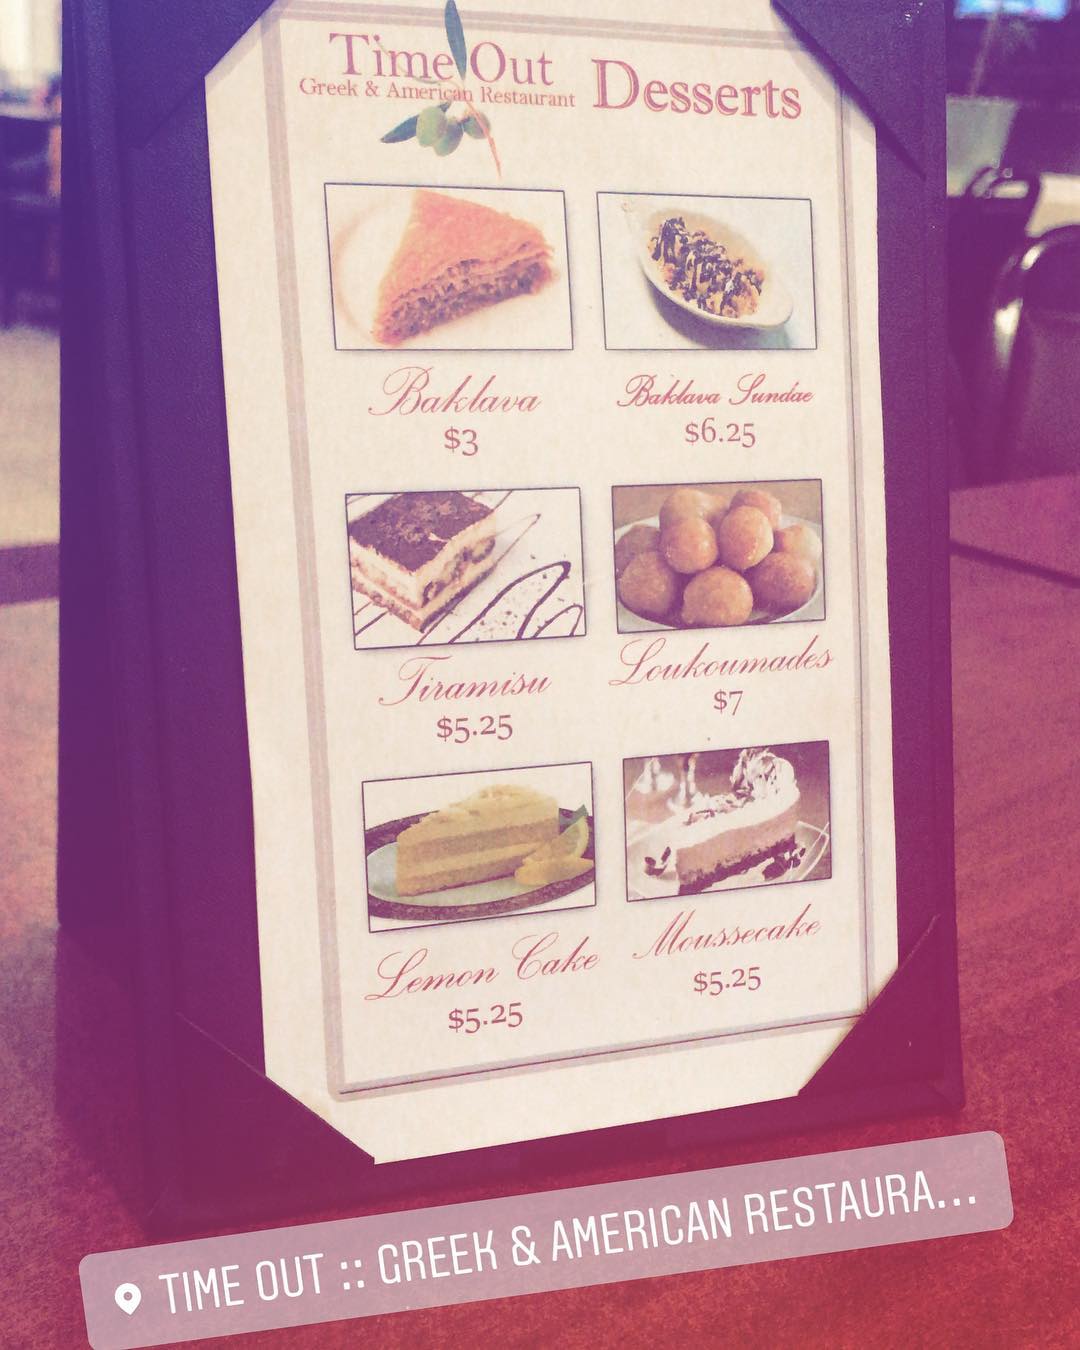 Time Out
Greek & American Restaurant
Desserts
Baklava
$3
Baklava Sundae
$6.25
Tiramisu
$5.25
Loukoumades
$7
Lemon Cake
$5.25
Moussecake
$5.25
TIME OUT :: GREEK & AMERICAN RESTAURA...